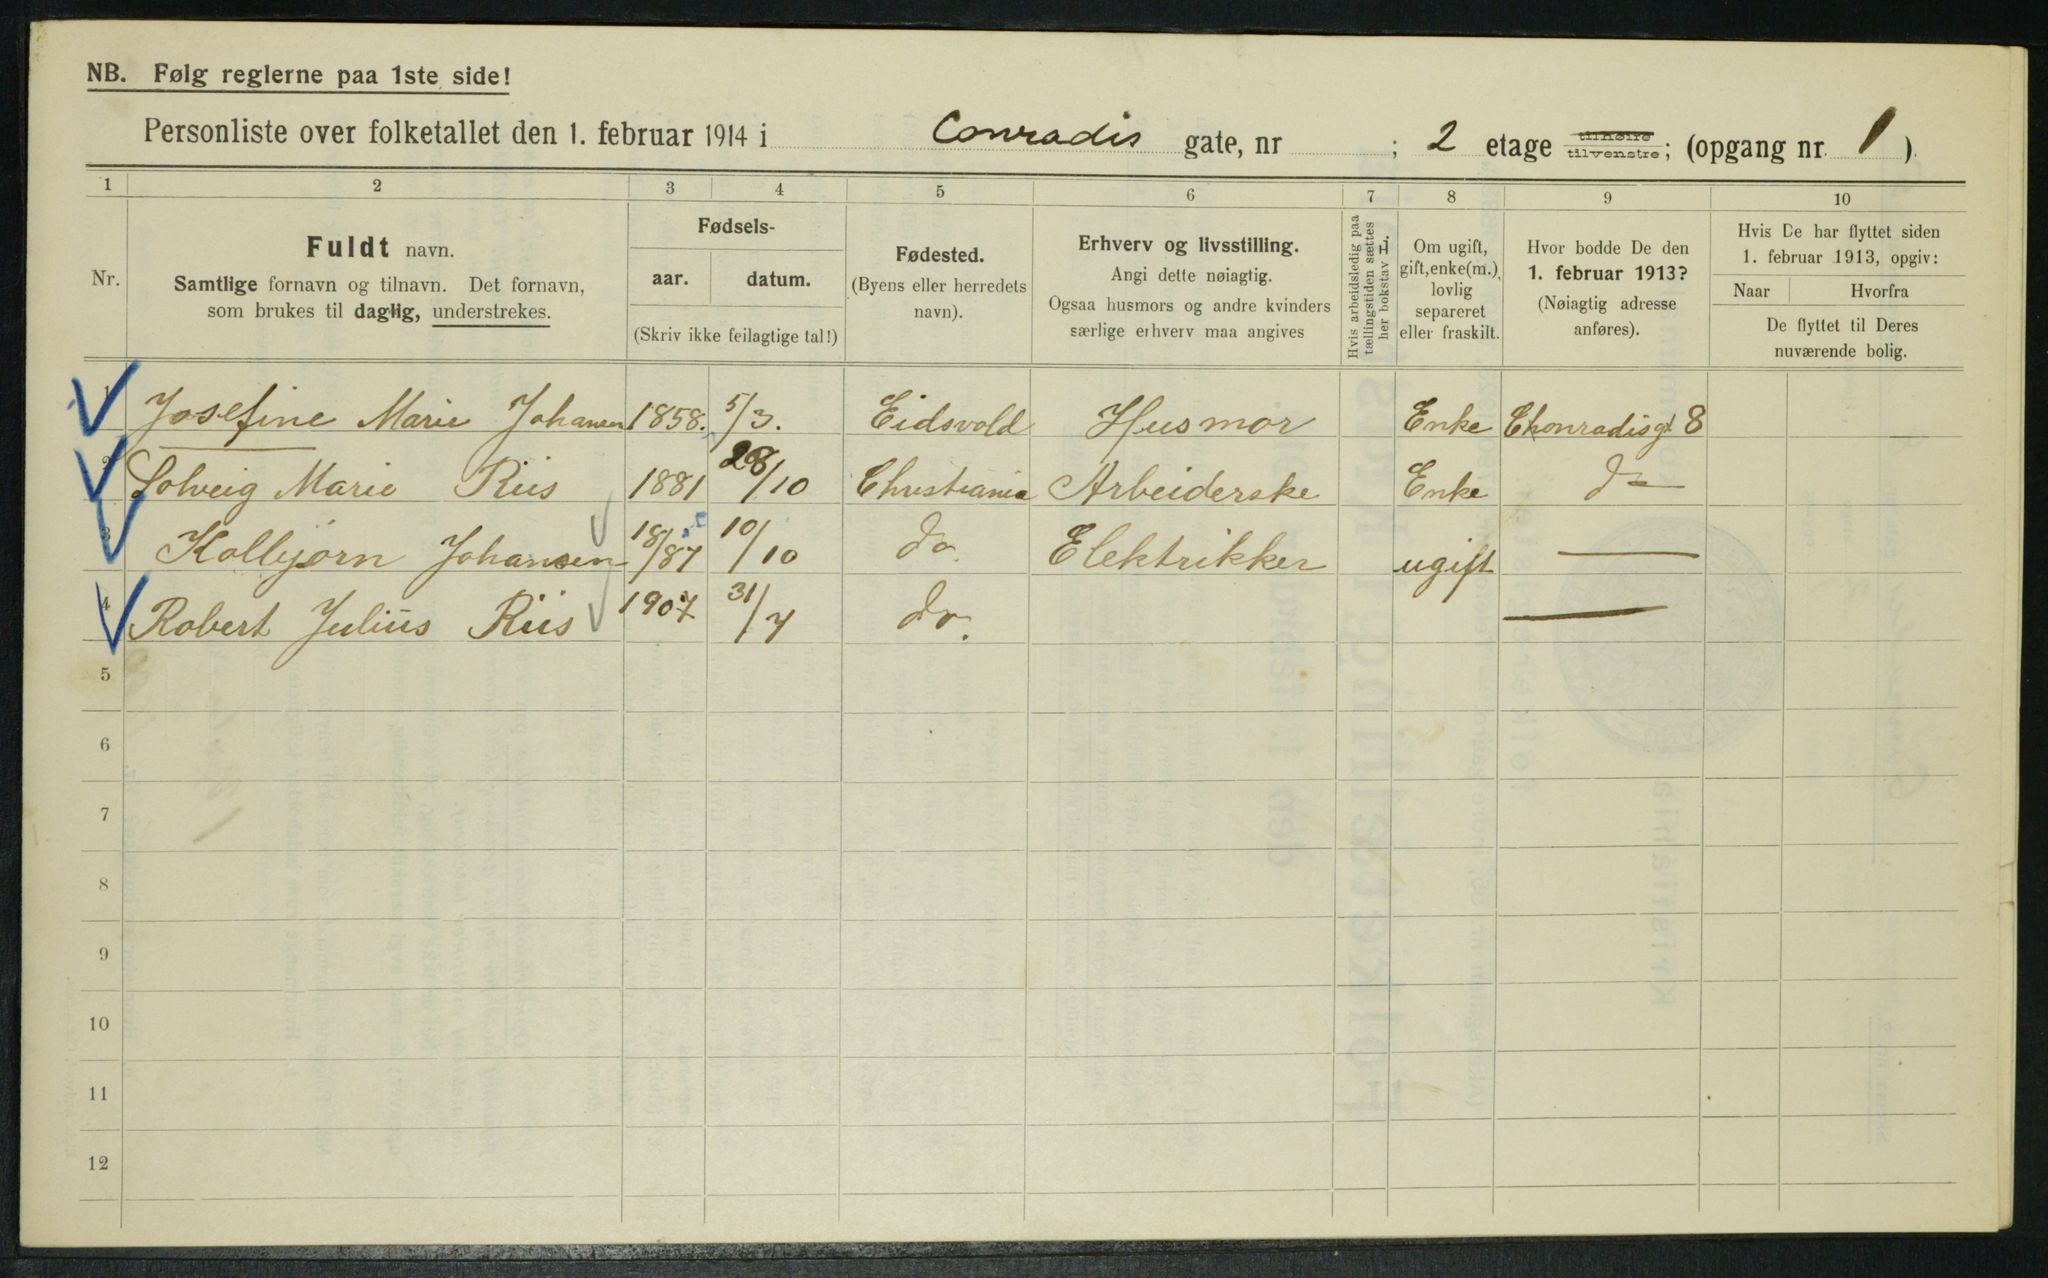 NB. Følg reglerne paa 1ste side!
Personliste over folketallet den 1. februar 1914 i Conradis gate, nr ; 2 etage tilhøire tilvenstre; (opgang nr. 1 ).
1 2 3 4 5 6 7 8 9 10
Nr.
Fuldt navn.
Samtlige fornavn og tilnavn. Det fornavn,
som brukes til daglig, understrekes.
Fødsels-
aar. datum.
(Skriv ikke feilagtige tal!)
Fødested.
(Byens eller herredets
navn).
Erhverv og livsstilling.
Angi dette nøiagtig.
Ogsaa husmors og andre kvinders
særlige erhverv maa angives
Hvis arbeidsledig paa
tællingstiden sættes
her bokstav L.
Om ugift,
gift, enke(m.),
lovlig
separeret
eller fraskilt.
Hvor bodde De den
1. februar 1913?
(Nøiagtig adresse
anføres).
Hvis De har flyttet siden
1. februar 1913, opgiv:
Naar Hvorfra
De flyttet til Deres
nuværende bolig.
1 Josefine Marie Johansen 1858. 5/3. Eidsvold Husmor Enke Chonradisgt 8
2 Solveig Marie Riis 1881 28/10 Christiania Arbeiderske Enke do
3 Kolbjørn Johansen 18/87 10/10 do Elektrikker ugift —
4 Robert Julius Riis 1907 31/7 do. —
5
6
7
8
9
10
11
12